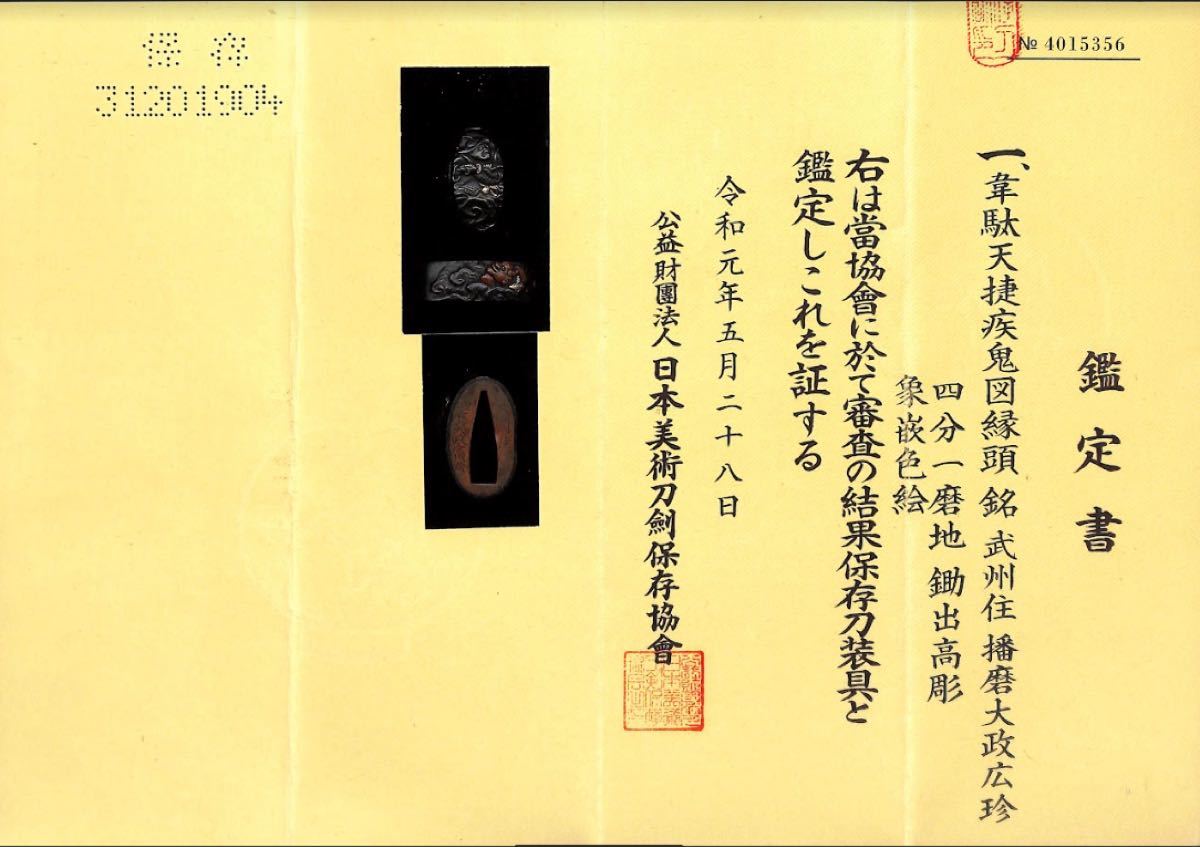 № 4015356
鑑定書
一、韋駄天捷疾鬼図縁頭 銘 武州住 播磨大政広珍
四分一磨地 鋤出高彫
象嵌色絵
右は當協會に於て審査の結果保存刀装具と
鑑定しこれを証する
令和元年五月二十八日
公益財團法人 日本美術刀劍保存協會
保存
31201904